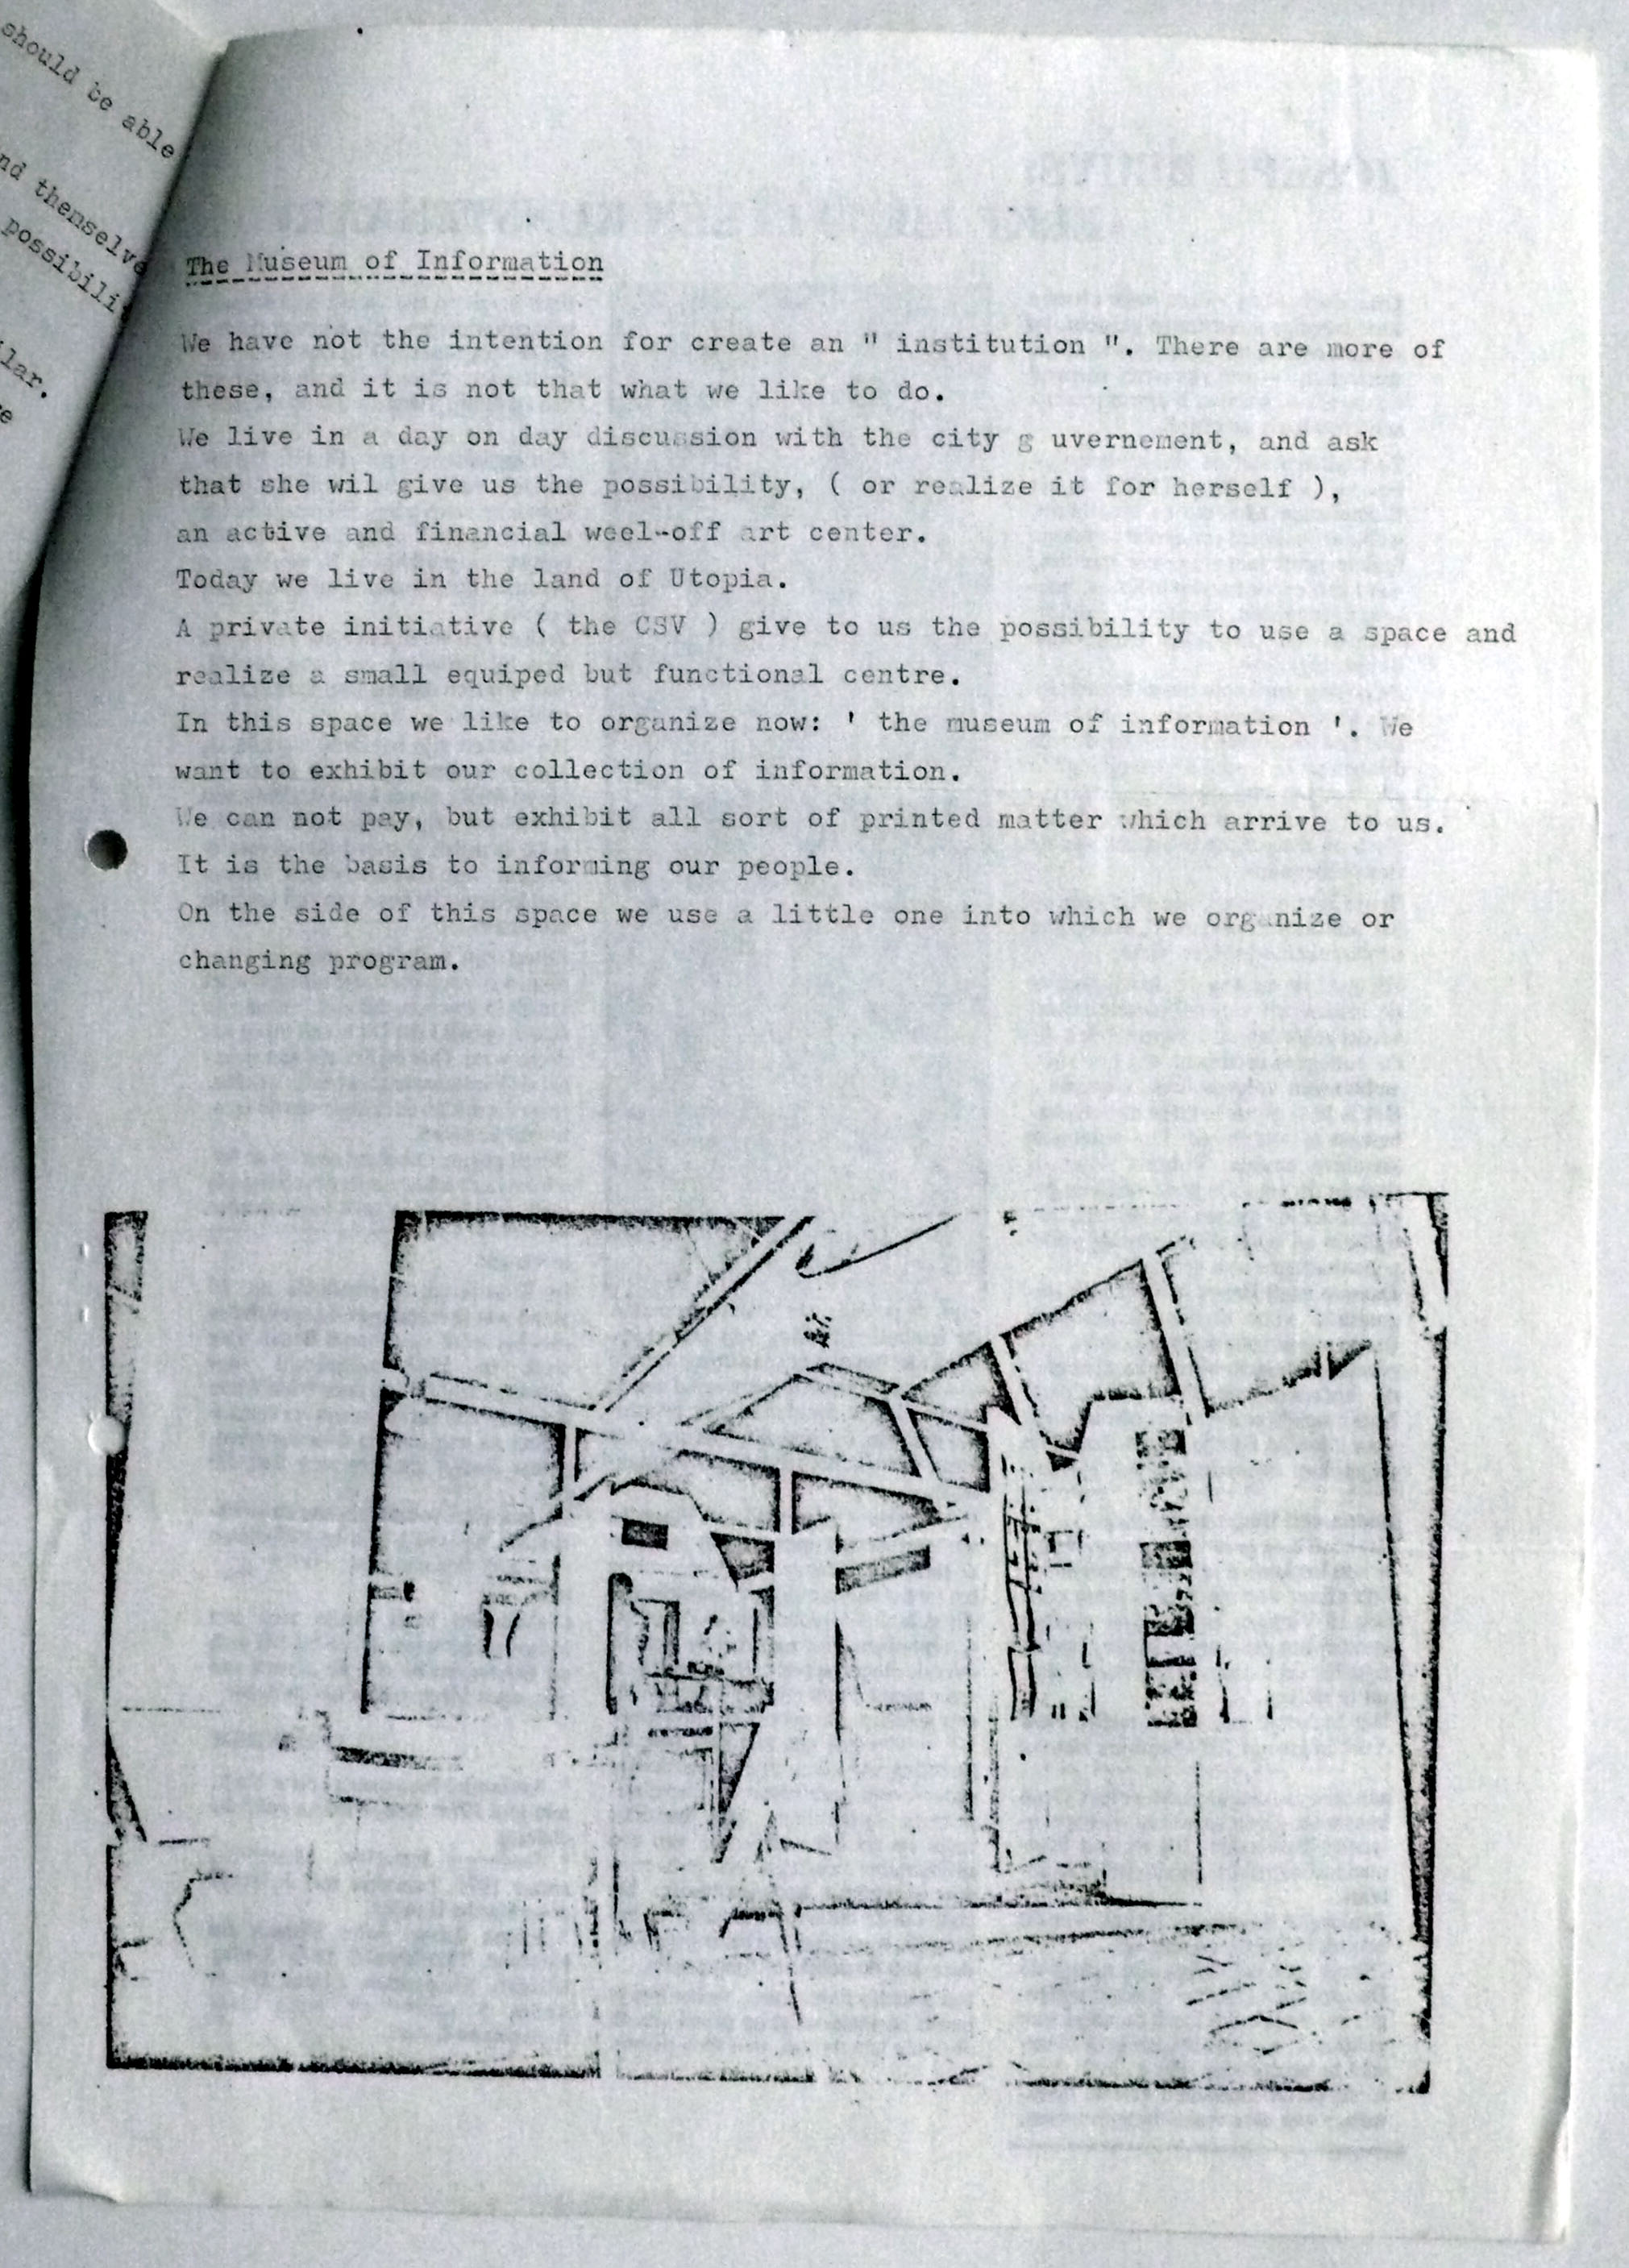 should be able
themselve
possibili
lar.
The Museum of Information
We have not the intention for create an " institution ". There are more of
these, and it is not that what we like to do.
We live in a day on day discussion with the city g uvernement, and ask
that she wil give us the possibility, ( or realize it for herself ),
an active and financial weel-off art center.
Today we live in the land of Utopia.
A private initiative ( the CSV ) give to us the possibility to use a space and
realize a small equiped but functional centre.
In this space we like to organize now: ' the museum of information '. We
want to exhibit our collection of information.
We can not pay, but exhibit all sort of printed matter which arrive to us.
It is the basis to informing our people.
On the side of this space we use a little one into which we organize or
changing program.